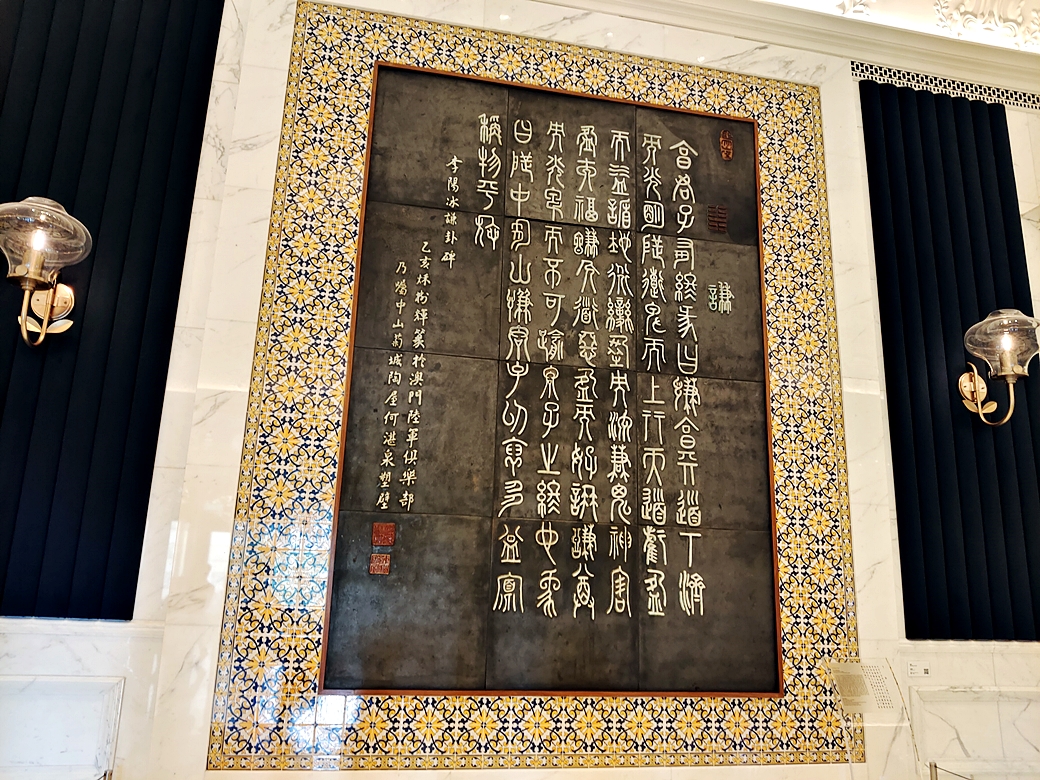 謙
亨君子有終彖曰謙亨天道下濟
而光明地道卑而上行天道虧盈
而益謙地道變盈而流謙鬼神害
盈而福謙人道惡盈而好謙謙尊
而光卑而不可踰君子之終也象
曰地中有山謙君子以裒多益寡
稱物平施
李陽冰謙卦碑
乙亥秌 於澳門陸軍俱樂部
乃 中山菊城陶屋何湛泉塑壁